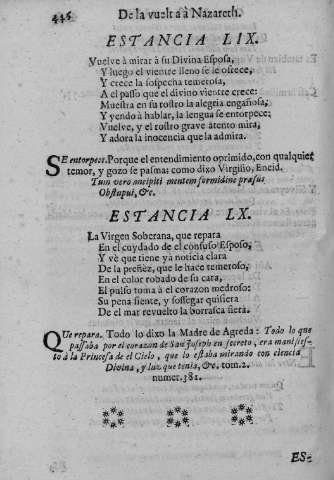 446 De la vuelta à Nazareth.
ESTANCIA LIX.
Vuelve à mirar à su Divina Esposa,
Y luego el vientre lleno se le ofrece,
Y crece la sospecha temerosa,
A el passo que el divino vientre crece:
Muestra en su rostro la alegria engañosa,
Y yendo à hablar, la lengua se entorpece;
Vuelve, y el rostro grave atento mira,
Y adora la inocencia que la admira.
SE entorpece. Porque el entendimiento oprimido, con qualquier
temor, y gozo se pasma: como dixo Virgilio, Eneid.
Tum vero ancipiti mentem formidine præsus
Obstupui, &c.
ESTANCIA LX.
La Virgen Soberana, que repara
En el cuydado de el confuso Esposo,
Y vè que tiene yà noticia clara
De la preñèz, que le hace temeroso,
En el color robado de su cara,
El pulso toma à el corazon medroso:
Su pena siente, y sossegar quisiera
De el mar revuelto la borrasca fiera.
QUe repara. Todo lo dixo la Madre de Agreda: Todo lo que
passaba por el corazon de San Joseph en secreto, era manifies-
to à la Princesa de el Cielo, que lo estaba mirando con ciencia
Divina, y luz que tenia, &c. tom. 2.
numer. 381.
ES-